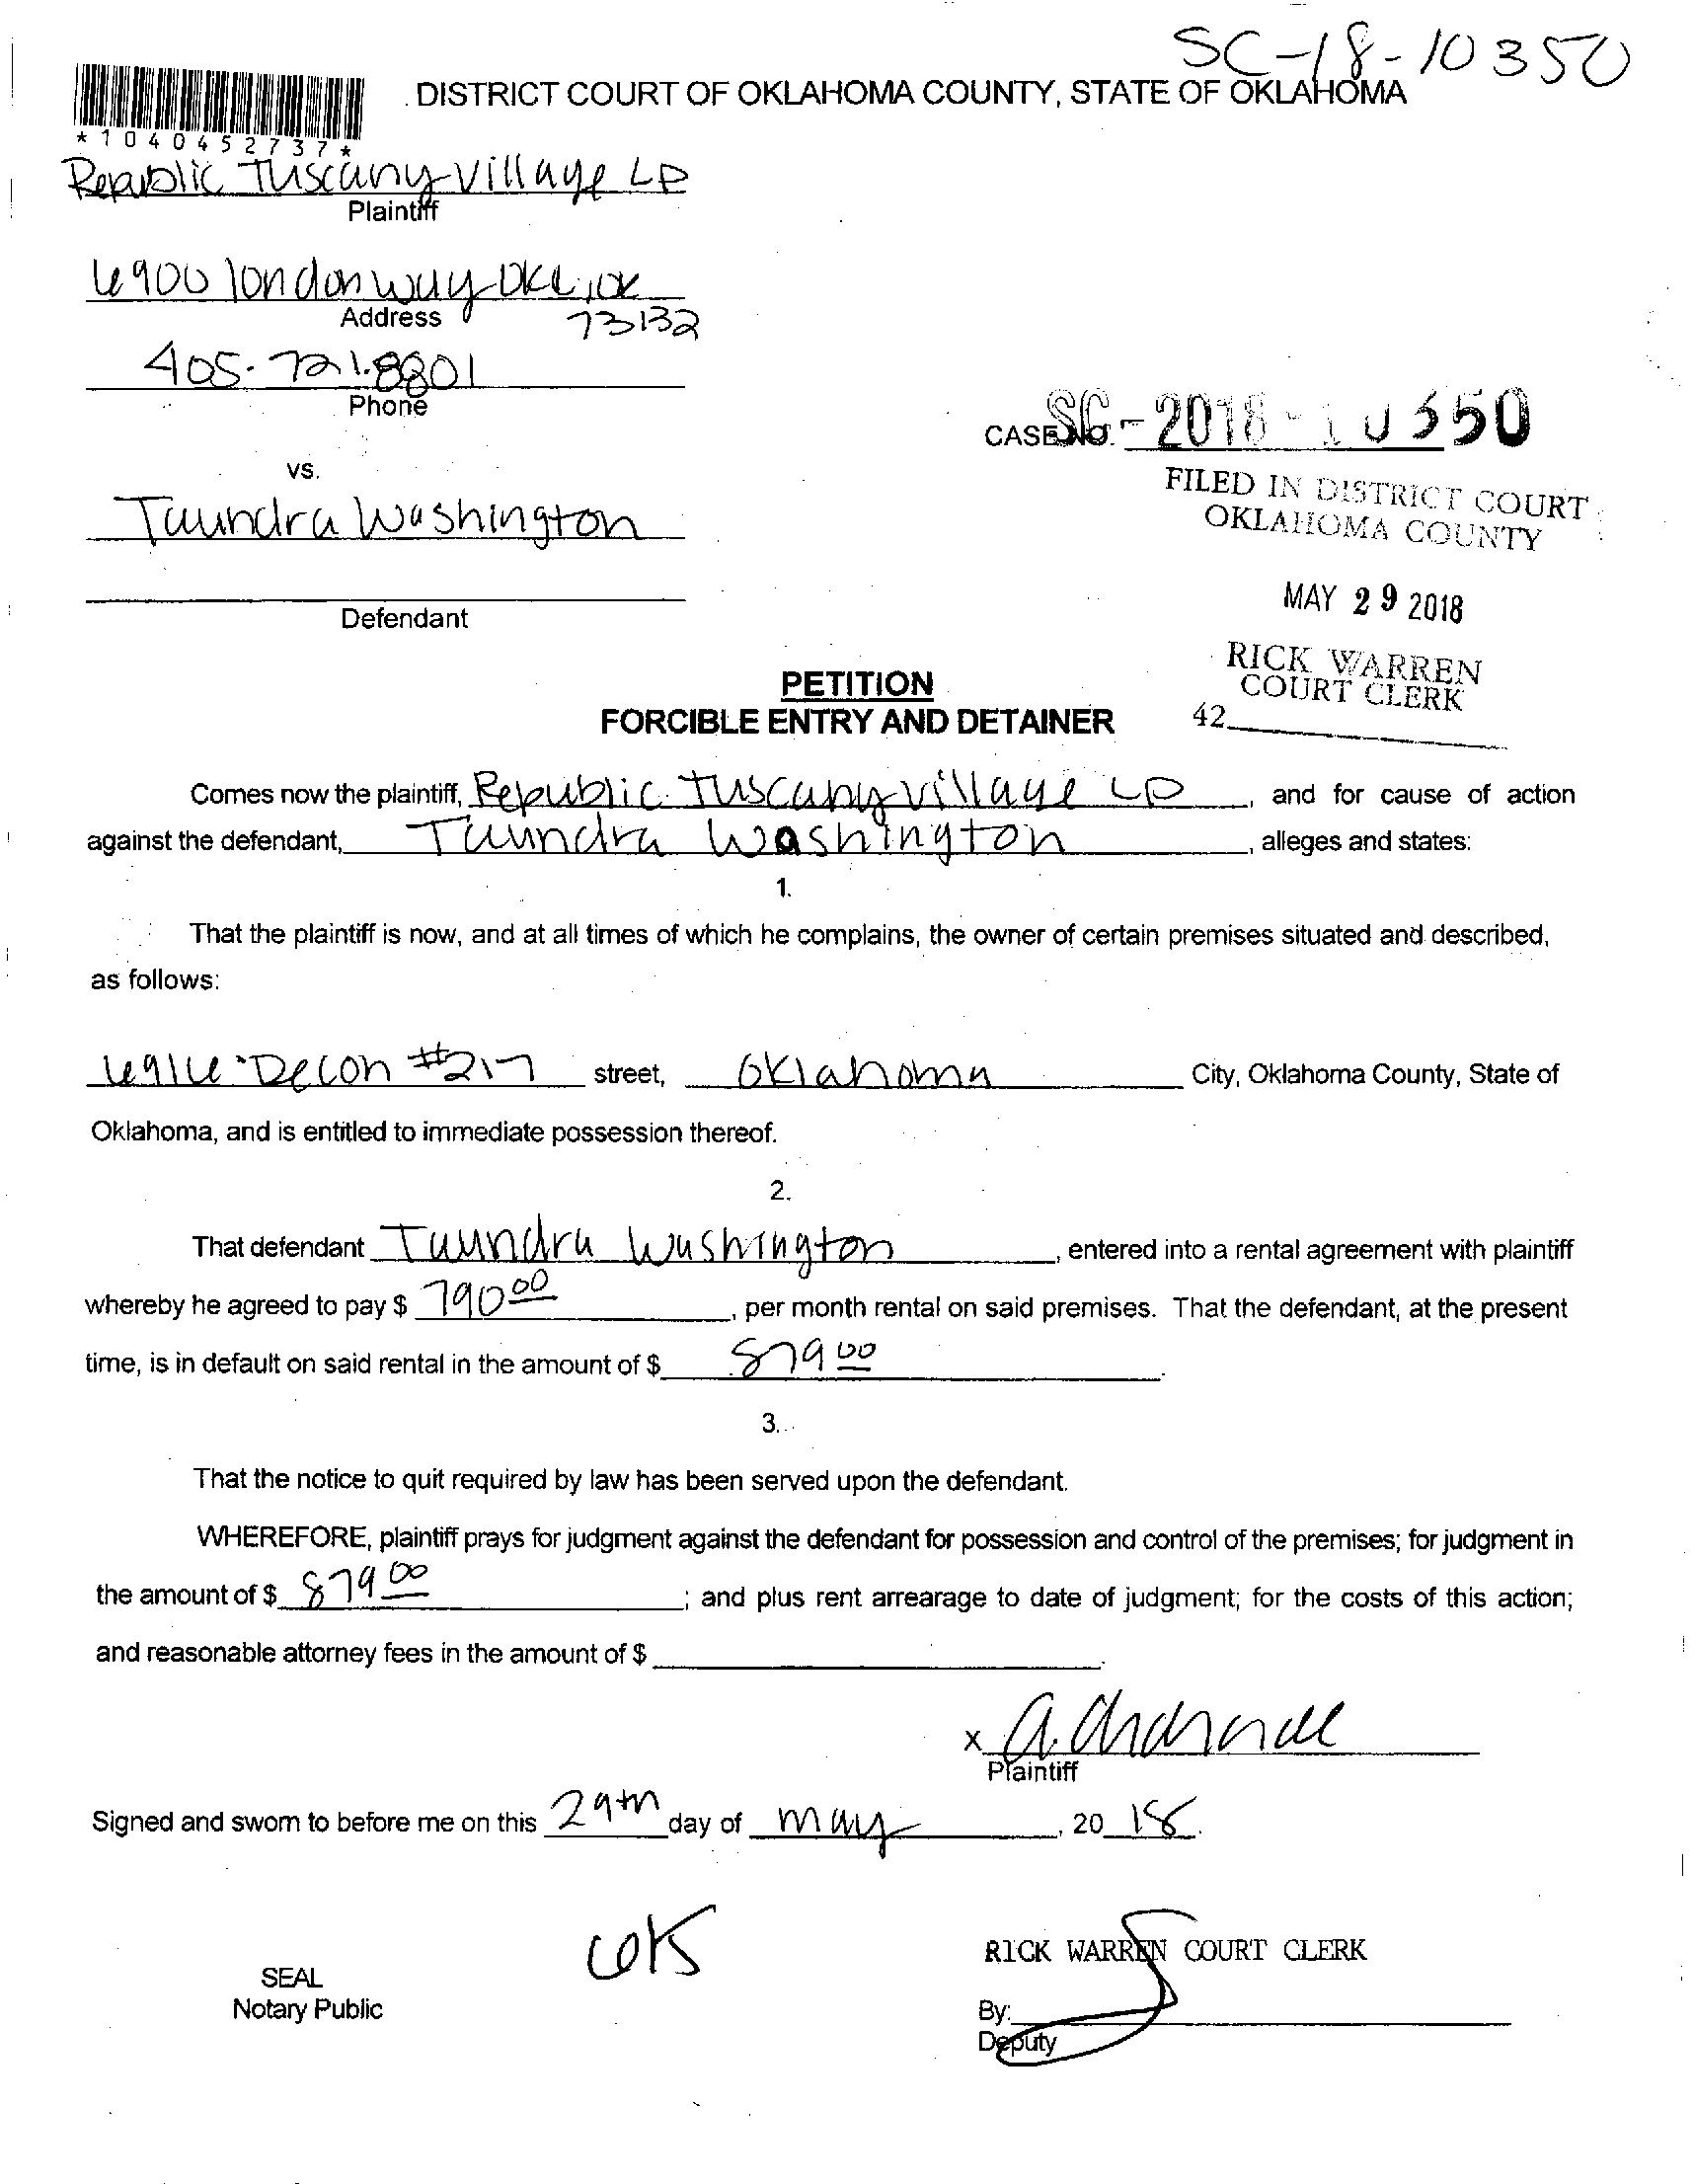 SC-18-10350
DISTRICT COURT OF OKLAHOMA COUNTY, STATE OF OKLAHOMA
*1040452737*
Republic Tuscany Village LP
Plaintiff
6900 London Way OKC, OK
Address 73132
405-721-8801
Phone
CASE No. SC-2018-10350
vs.
FILED IN DISTRICT COURT
OKLAHOMA COUNTY
Taundra Washington
MAY 29 2018
Defendant
RICK WARREN
COURT CLERK
42
PETITION
FORCIBLE ENTRY AND DETAINER
Comes now the plaintiff, Republic Tuscany Village LP, and for cause of action
against the defendant, Taundra Washington, alleges and states:
1.
That the plaintiff is now, and at all times of which he complains, the owner of certain premises situated and described,
as follows:
6916 Decon #217 street, Oklahoma City, Oklahoma County, State of
Oklahoma, and is entitled to immediate possession thereof.
2.
That defendant Taundra Washington, entered into a rental agreement with plaintiff
whereby he agreed to pay $ 790.00, per month rental on said premises. That the defendant, at the present
time, is in default on said rental in the amount of $ 879.00.
3.
That the notice to quit required by law has been served upon the defendant.
WHEREFORE, plaintiff prays for judgment against the defendant for possession and control of the premises; for judgment in
the amount of $ 879.00; and plus rent arrearage to date of judgment; for the costs of this action;
and reasonable attorney fees in the amount of $
x
Plaintiff
Signed and sworn to before me on this 29th day of May, 2018.
RICK WARREN COURT CLERK
SEAL
Notary Public
By:
Deputy